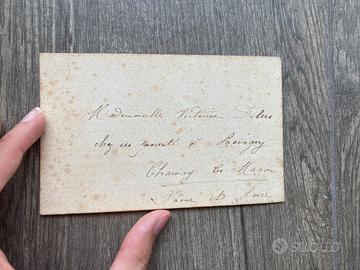 Mademoiselle Victorine
chez ses parents à Levigny
Charnay les Macon
Saône et Loire
subito